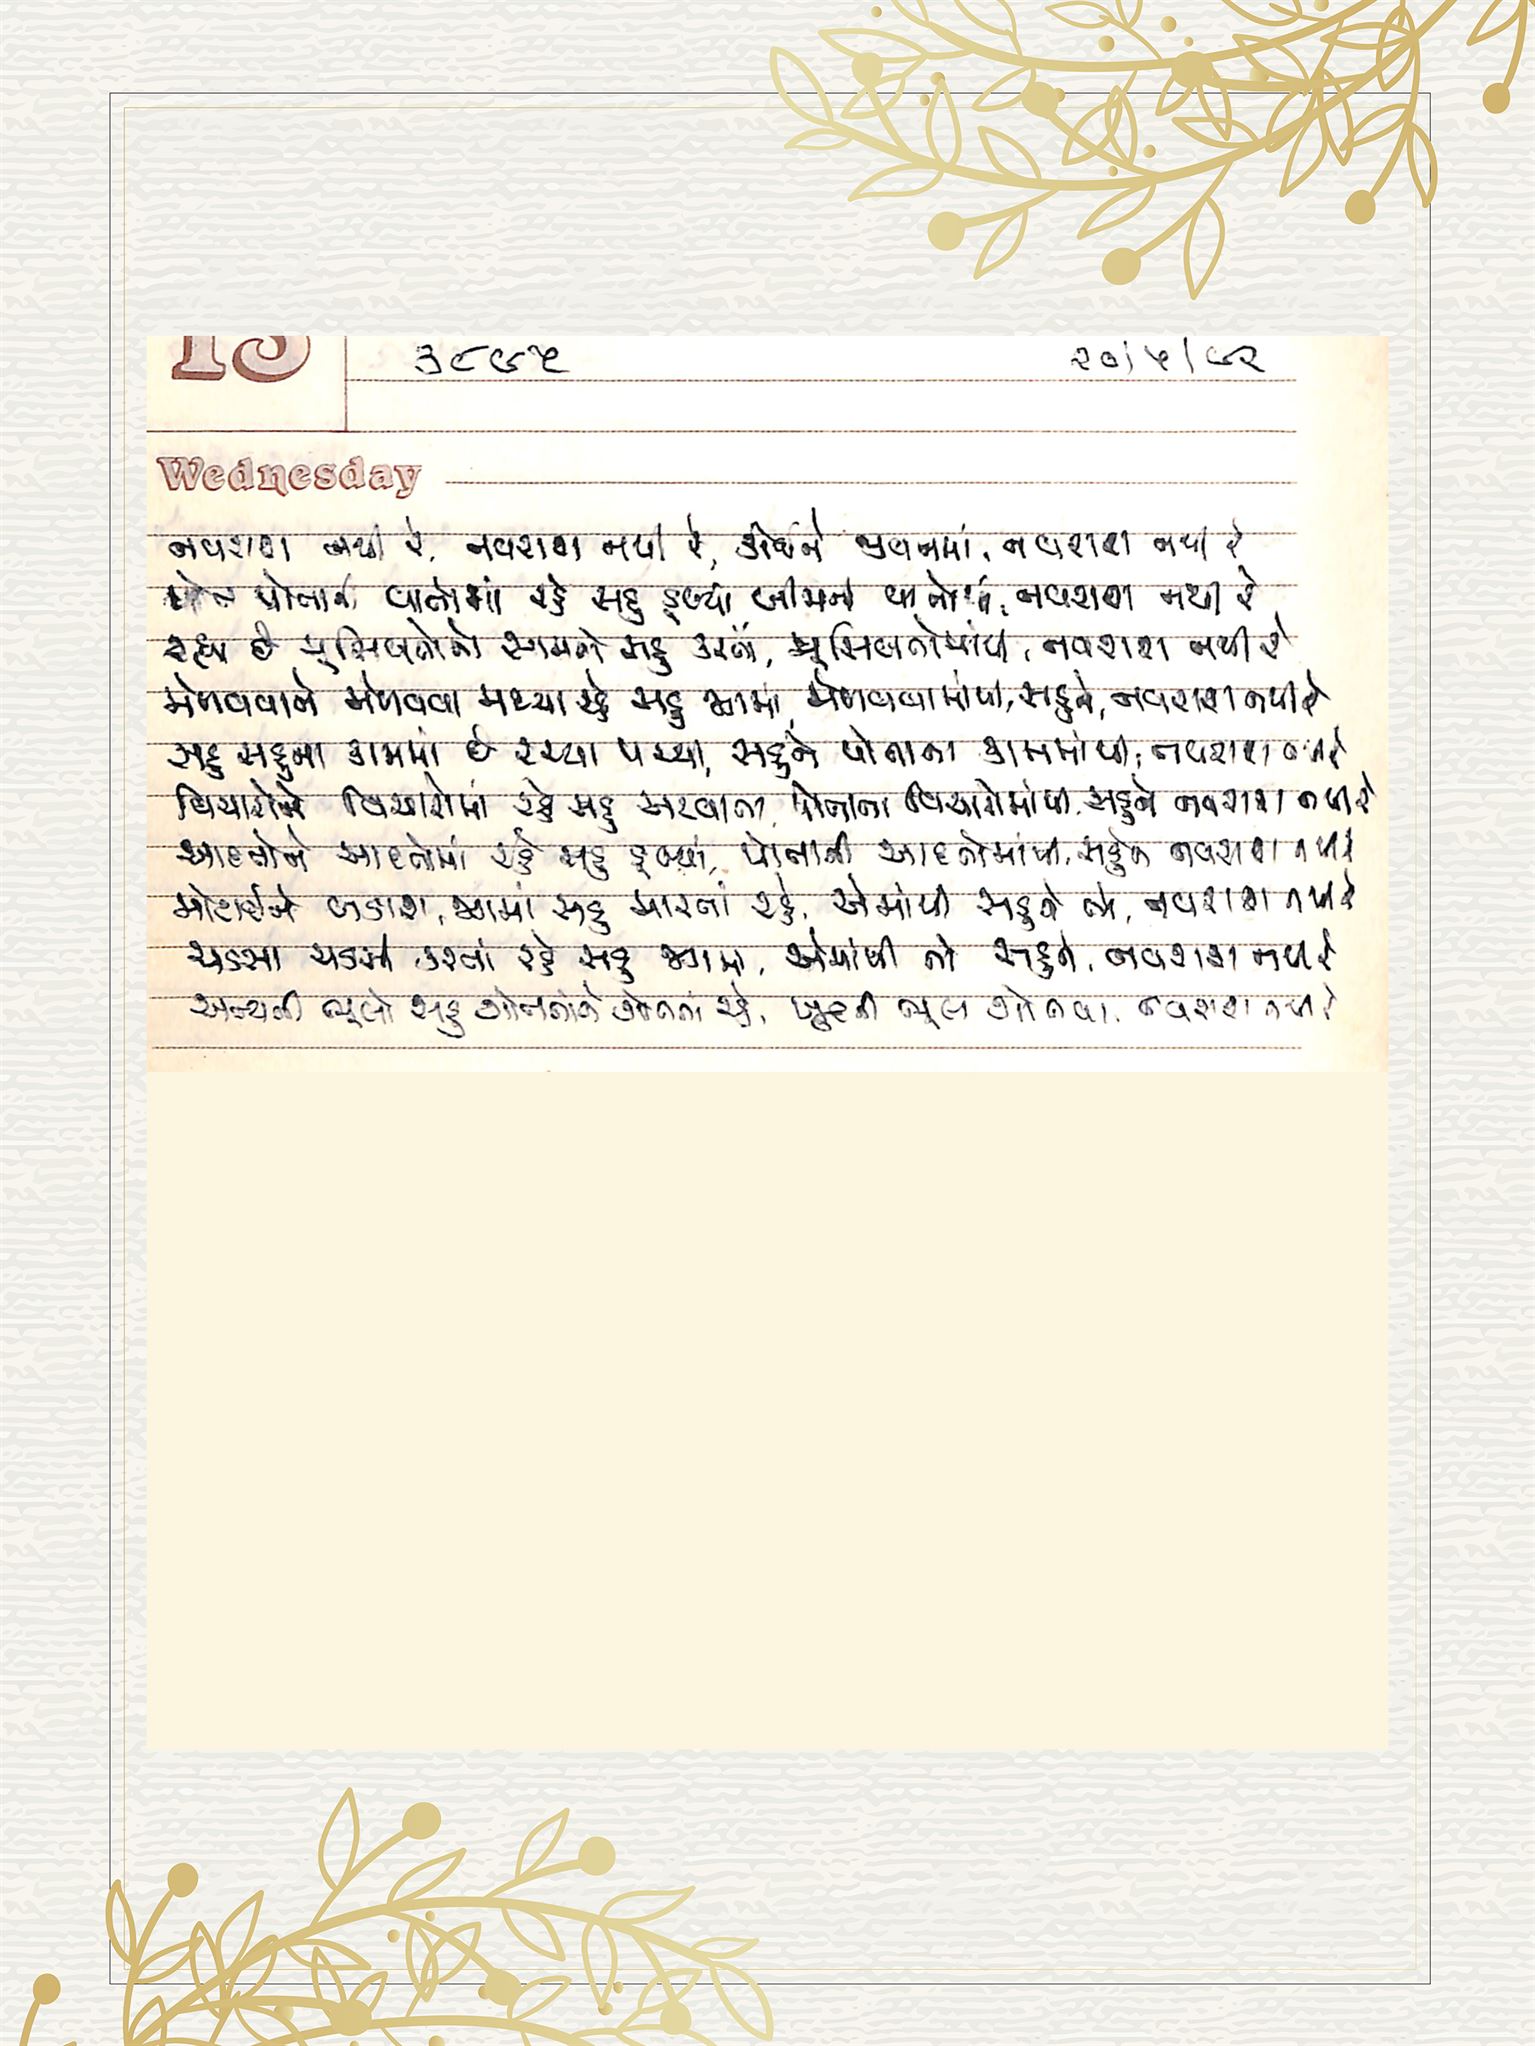 15 ૩૮૯૫ ૨૦/૫/૯૨
Wednesday
નવરાશ નથી રે, નવરાશ નથી રે, કોઈને જીવનમાં, નવરાશ નથી રે
પોતાની વાતોમાં રહે સહુ ડૂબ્યાં બીજાની વાતોમાં, નવરાશ નથી રે
છે મુસીબતોનો સામનો સહુ કરતા, મુસીબતોમાંથી, નવરાશ નથી રે
મેળવવાને મેળવવા મથ્યા રહે સહુ જગમાં, મેળવવામાંથી, સહુને, નવરાશ નથી રે
સહુ સહુના કામમાં છે રચ્યા પચ્યા, સહુને પોતાના કામમાંથી, નવરાશ નથી રે
વિચારોને વિચારોમાં રહે સહુ સરવાતા, પોતાના વિચારોમાંથી, સહુને નવરાશ નથી રે
આદતોને આદતોમાં રહે સહુ ડૂબ્યાં, પોતાની આદતોમાંથી, સહુને નવરાશ નથી રે
મોટાઈને બડાશ, જગમાં સહુ મારતાં રહે, એમાંથી સહુને તો, નવરાશ નથી રે
ચડસા ચડસી કરતાં રહે સહુ જગમાં, એમાંથી તો સહુને, નવરાશ નથી રે
અન્યની ભૂલો સહુ ગોતતાને ગોતતાં રહે, ખુદની ભૂલ ગોતવા, નવરાશ નથી રે